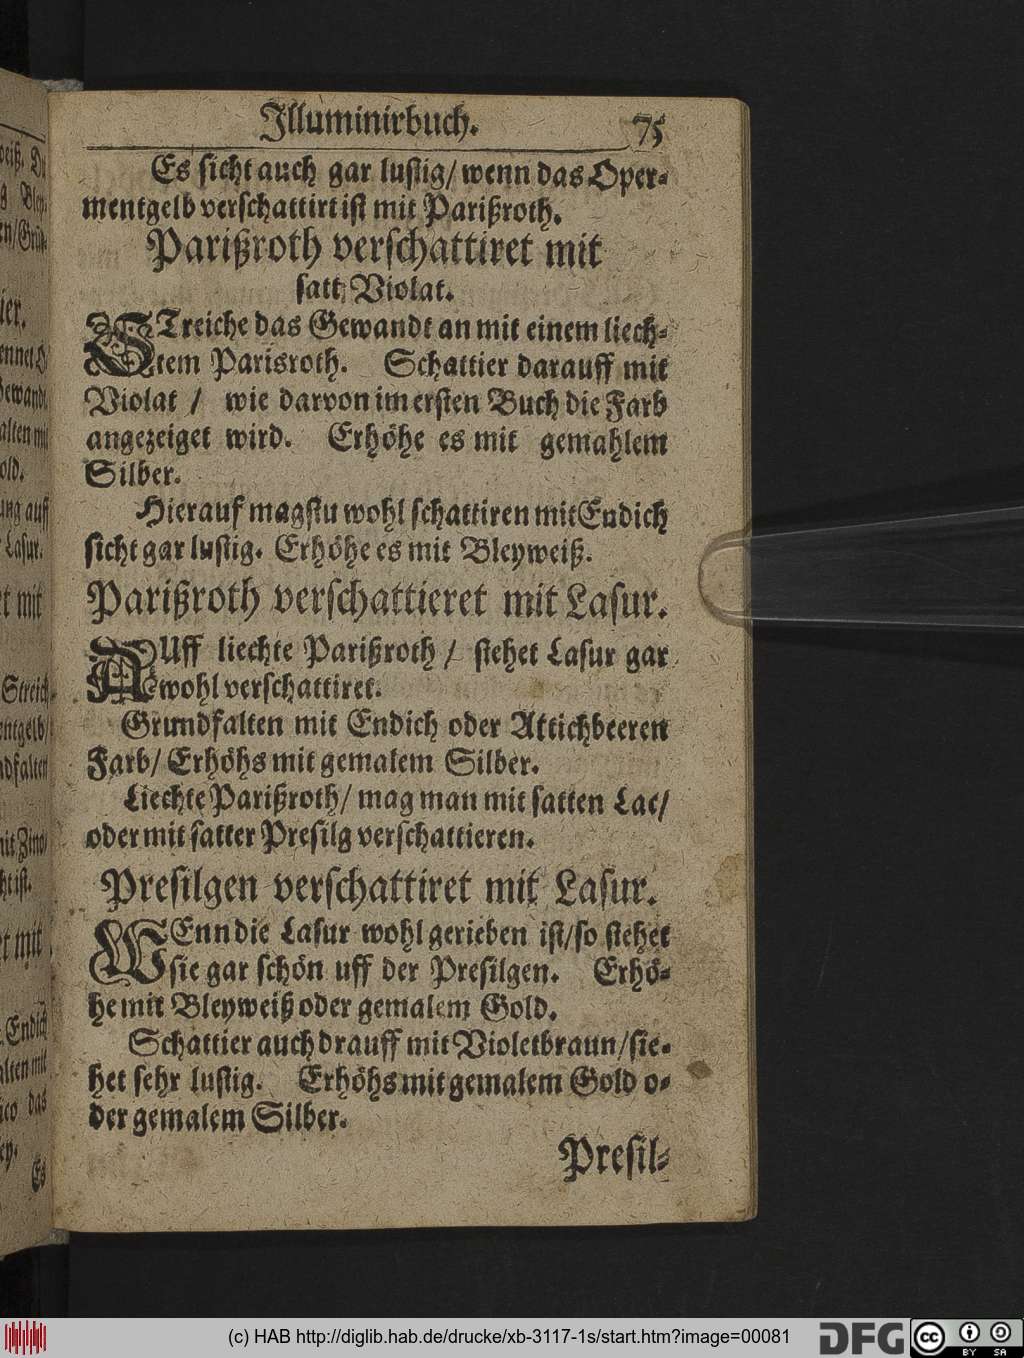 Illuminirbuch. 75
Es sicht auch gar lustig/ wenn das Oper-
mentgelb verschattirt ist mit Parißroth.
Parißroth verschattiret mit
satt Violat.
STreiche das Gewandt an mit einem liech-
tem Parisroth. Schattier darauff mit
Violat / wie darvon im ersten Buch die Farb
angezeiget wird. Erhöhe es mit gemahlem
Silber.
Hierauf magstu wohl schattiren mit Endich
sicht gar lustig. Erhöhe es mit Bleyweiß.
Parißroth verschattieret mit Lasur.
AUff liechte Parißroth / stehet Lasur gar
wohl verschattiret.
Grundfalten mit Endich oder Attichbeeren
Farb/ Erhöhs mit gemalem Silber.
Liechte Parißroth/ mag man mit satten Lac/
oder mit satter Presilg verschattieren.
Presilgen verschattiret mit Lasur.
WEnn die Lasur wohl gerieben ist/ so stehet
sie gar schön uff der Presilgen. Erhö-
he mit Bleyweiß oder gemalem Gold.
Schattier auch drauff mit Violetbraun/ sie-
het sehr lustig. Erhöhs mit gemalem Gold o-
der gemalem Silber.
Presil-
(c) HAB http://diglib.hab.de/drucke/xb-3117-1s/start.htm?image=00081
DFG
cc BY SA